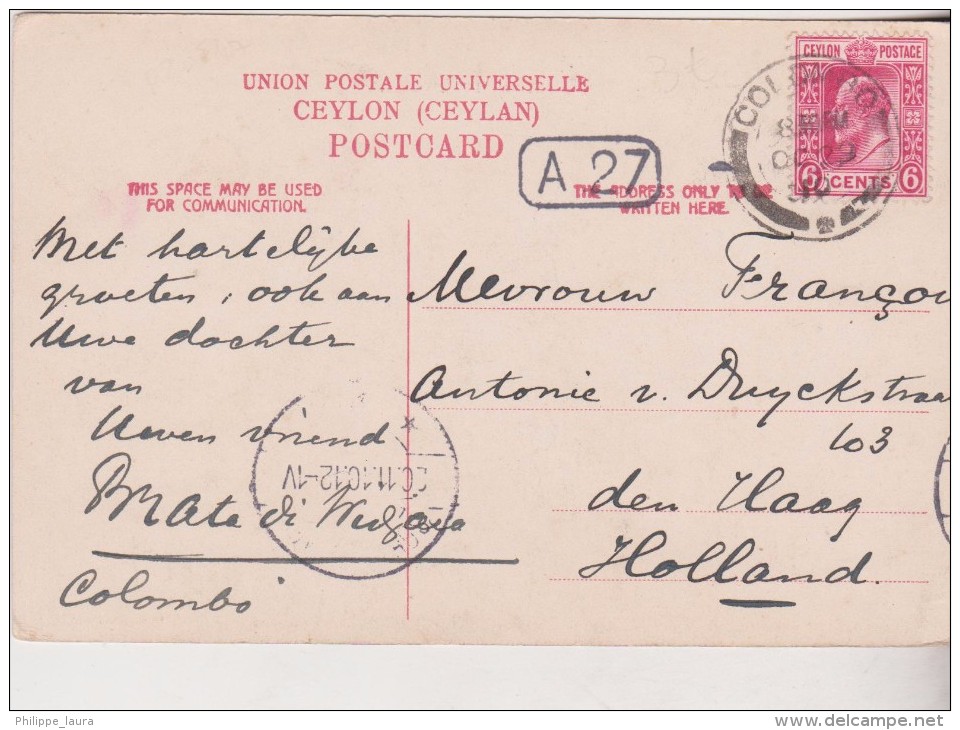 UNION POSTALE UNIVERSELLE
CEYLON (CEYLAN)
POSTCARD
A 27
CEYLON POSTAGE
6 CENTS 6
THIS SPACE MAY BE USED
FOR COMMUNICATION.
THE ADDRESS ONLY TO BE
WRITTEN HERE.
Met hartelijke
groeten, ook aan
Uwe dochter
van
Uwen vriend
Colombo
Mevrouw Françoi
Antonie v. Duyckstraa
103
den Haag
Holland.
20.11.10.12-1V
Philippe_laura
delcampe.net